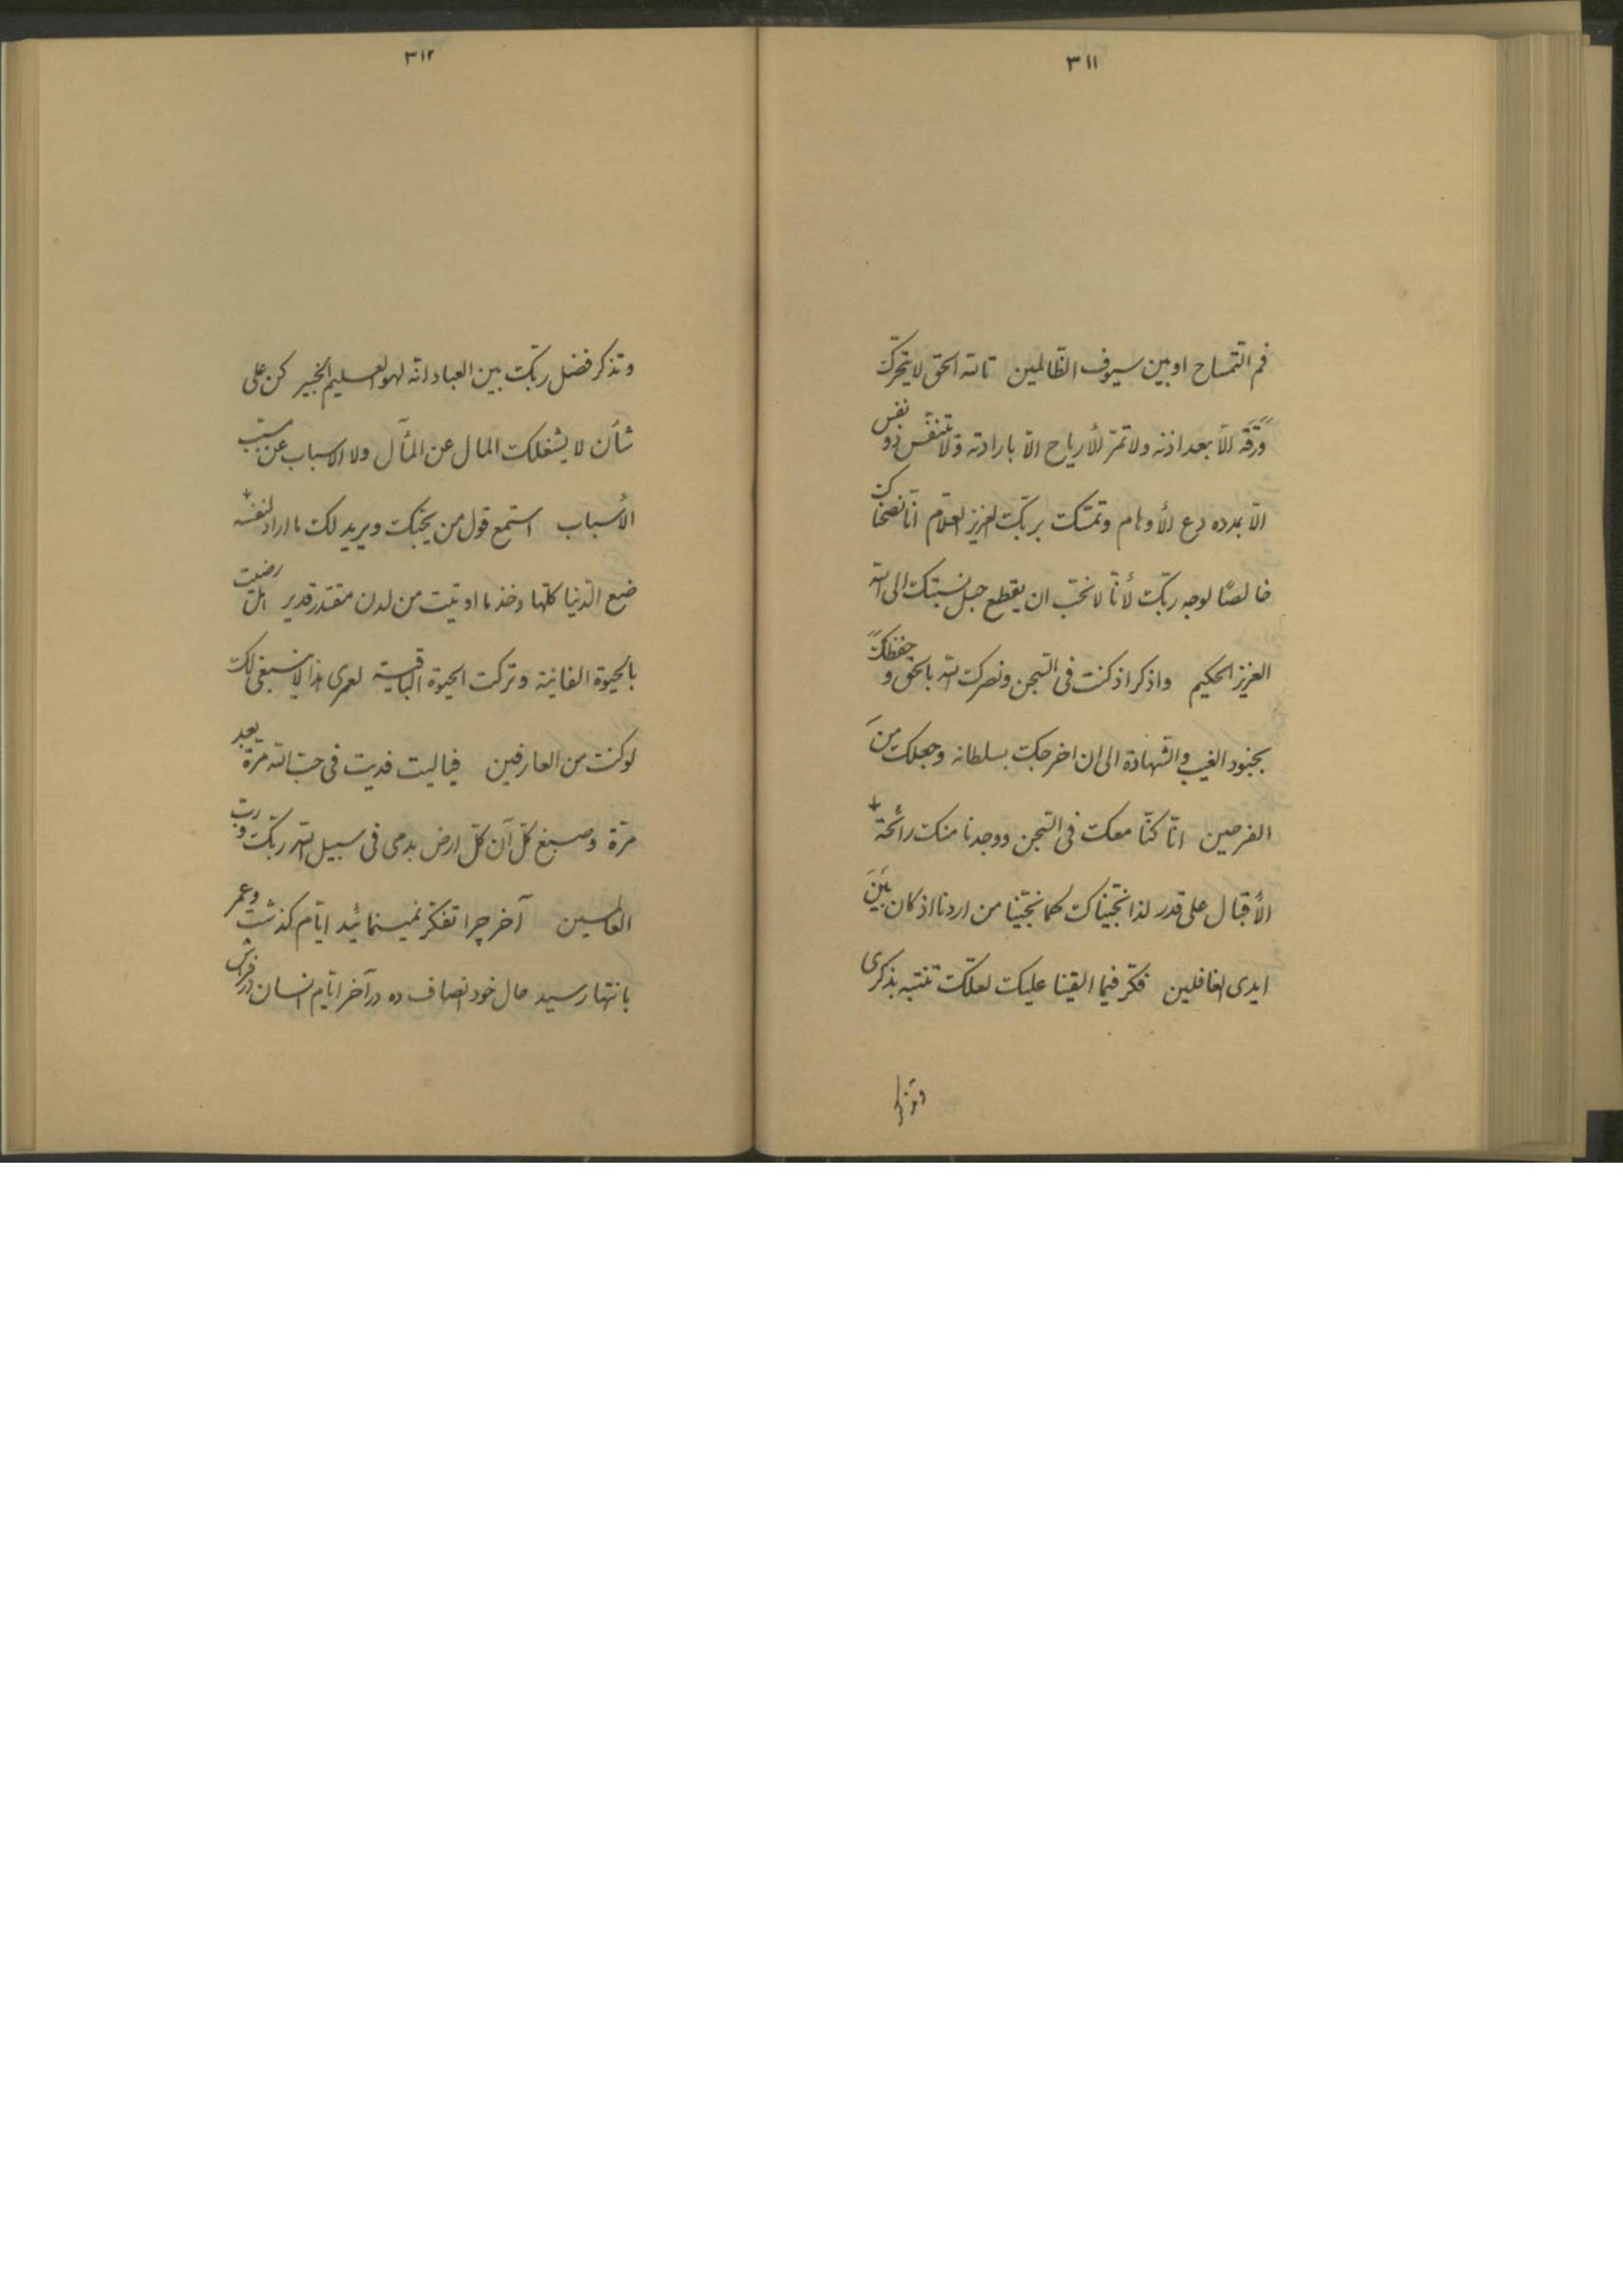 ٣١١
فم التمساح او بين سيوف الظّالمين تالله الحق لا يتحرّك
ورقة الّا بعد اذنه ولا تمرّ الأرياح الّا بارادته ولا تتنفّس ذو نفس
الّا بمدده دع الأوهام وتمسّك بربّك العزيز العلّام انّا نصحناك
خالصًا لوجه ربّك لأنّا لا نحبّ ان يقطع حبل نسبتك الى الله
العزيز الحكيم واذكر اذ كنت فى السّجن ونصرك الله بالحقّ و حفظك
بجنود الغيب والشّهادة الى ان اخرجك بسلطانه وجعلك من
الفرحين انّا كنّا معك فى السّجن ووجدنا منك رائحة
الأقبال على قدر لذا نجّيناك كما نجّينا من اردنا اذ كان بين
ايدى الغافلين فكّر فيما القينا عليك لعلّك تتنبّه بذكرى
وتذكر
٣١٢
وتذكر فضل ربّك بين العباد انّه لهو العليم الخبير كن على
شأن لا يشغلك المال عن المآل ولا الاسباب عن مسبّب
الأسباب استمع قول من يحبّك ويريد لك ما اراد لنفسه
ضع الدّنيا كلّها وخذ ما اوتيت من لدن مقتدر قدير هل رضيت
بالحيوة الفانية وتركت الحيوة الباقية لعمرى هذا لا ينبغى لك
لو كنت من العارفين فياليت فديت فى حبّ الله مرّة بعد
مرّة وصبغ كلّ آن كلّ ارض بدمى فى سبيل الله ربّك و ربّ
العالمين آخر چرا تفكّر نمينمائيد ايّام گذشت وعمر
بانتها رسيد حال خود انصاف ده در آخر ايّام انسان در فراش